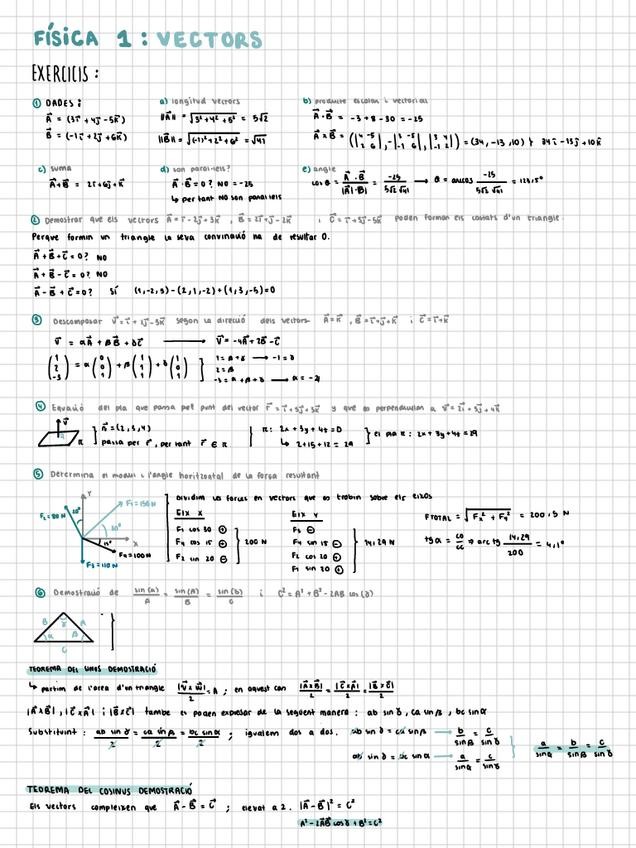 FÍSICA 1 : VECTORS
EXERCICIS :
① DADES:
A⃗ = (3i⃗ + 4j⃗ - 5k⃗)
B⃗ = (-1i⃗ + 2j⃗ + 6k⃗)
a) longitud vectors
||A|| = √(3² + 4² + 5²) = 5√2
||B|| = √((-1)² + 2² + 6²) = √41
b) producte escalar i vectorial
A⃗ · B⃗ = -3 + 8 - 30 = -25
A⃗ x B⃗ = (|4 -5; 2 6|, -|3 -5; -1 6|, |3 4; -1 2|) = (34, -13, 10) } 34i⃗ - 13j⃗ + 10k⃗
c) suma
A⃗ + B⃗ = 2i⃗ + 6j⃗ + k⃗
d) son paral·lels?
A⃗ · B⃗ = 0? NO = -25
↳ per tant NO son paral·lels
e) angle
cos θ = A⃗ · B⃗ / |A⃗|·|B⃗| = -25 / 5√2 √41 → θ = arccos -25 / 5√2 √41 =
② Demostrar que els vectors A⃗ = i⃗ - 2j⃗ + 3k⃗ , B⃗ = 2i⃗ + j⃗ - 2k⃗ i C⃗ = i⃗ + 3j⃗ - 5k⃗ poden formar els costats d'un triangle.
Perque formin un triangle la seva convinació ha de resultar 0.
A⃗ + B⃗ + C⃗ = 0? NO
A⃗ + B⃗ - C⃗ = 0? NO
A⃗ - B⃗ + C⃗ = 0? SÍ (1,-2,3) - (2,1,-2) + (1,3,-5) = 0
③ Descomposar V⃗ = i⃗ + 2j⃗ - 3k⃗ segon la direcció dels vectors A⃗ = k⃗ , B⃗ = j⃗ + k⃗ i C⃗ = i⃗ + k⃗
V⃗ = αA⃗ + βB⃗ + δC⃗ → V⃗ = -4A⃗ + 2B⃗ - C⃗
(1 2 -3) = α (0 0 1) + β (1 1 0) + δ (1 0 1)
1 = β + δ → -1 = δ
2 = β
-3 = α + β + δ →
④ Equació del pla que passa pel punt del vector r⃗ = i⃗ + 5j⃗ + 3k⃗ y que es perpendicular a V⃗ = 2i⃗ + 3j⃗ + 4k⃗
n⃗ = (2,3,4)
passa per r⃗, per tant r⃗ ∈ π
π: 2x + 3y + 4z = D
↳ 2 + 15 + 12 = 29
el pla π: 2x + 3y + 4z = 29
⑤ Determina el modul i l'angle horitzontal de la força resultant
Y
X
F₁ = 150 N
F₂ = 80 N
F₃ = 110 N
F₄ = 100 N
20°
30°
15°
Dividim la forces en vectors que es trobin sobre els eixos
EIX X
F₁ cos 30 ⊕
F₄ cos 15 ⊕
F₂ sin 20 ⊖
200 N
EIX Y
F₃ ⊖
F₄ sin 15 ⊖
F₂ cos 20 ⊕
F₁ sin 30 ⊕
14,29 N
F TOTAL = √(Fₓ² + Fᵧ²) = 200,5 N
tg α = co/cc → arctg 14,29 / 200 = 4,1°
⑥ Demostració de sin(α)/A = sin(β)/B = sin(δ)/C i C² = A² + B² - 2AB cos(δ)
B A C α β γ
TEOREMA DEL SINUS DEMOSTRACIÓ
↳ partim de l'area d'un triangle |V⃗ x W⃗|/2 = A ; en aquest con |A⃗ x B⃗|/2 = |C⃗ x A⃗|/2 = |B⃗ x C⃗|/2
|A⃗ x B⃗| , |C⃗ x A⃗| i |B⃗ x C⃗| també es poden expresar de la seguent manera : ab sin δ, ca sin β, bc sin α
Substituint : ab sin δ/2 = ca sin β/2 = bc sin α/2 ; igualem dos a dos. ab sin δ = ca sin β → b/sin β = c/sin δ
ab sin δ = bc sin α → a/sin α = c/sin δ
a/sin α = b/sin β = c/sin δ
TEOREMA DEL COSINUS DEMOSTRACIÓ
Els vectors compleixen que A⃗ - B⃗ = C⃗ ; elevat a 2. |A⃗ - B⃗|² = C²
A² - 2A⃗B⃗ cos δ + B² = C²